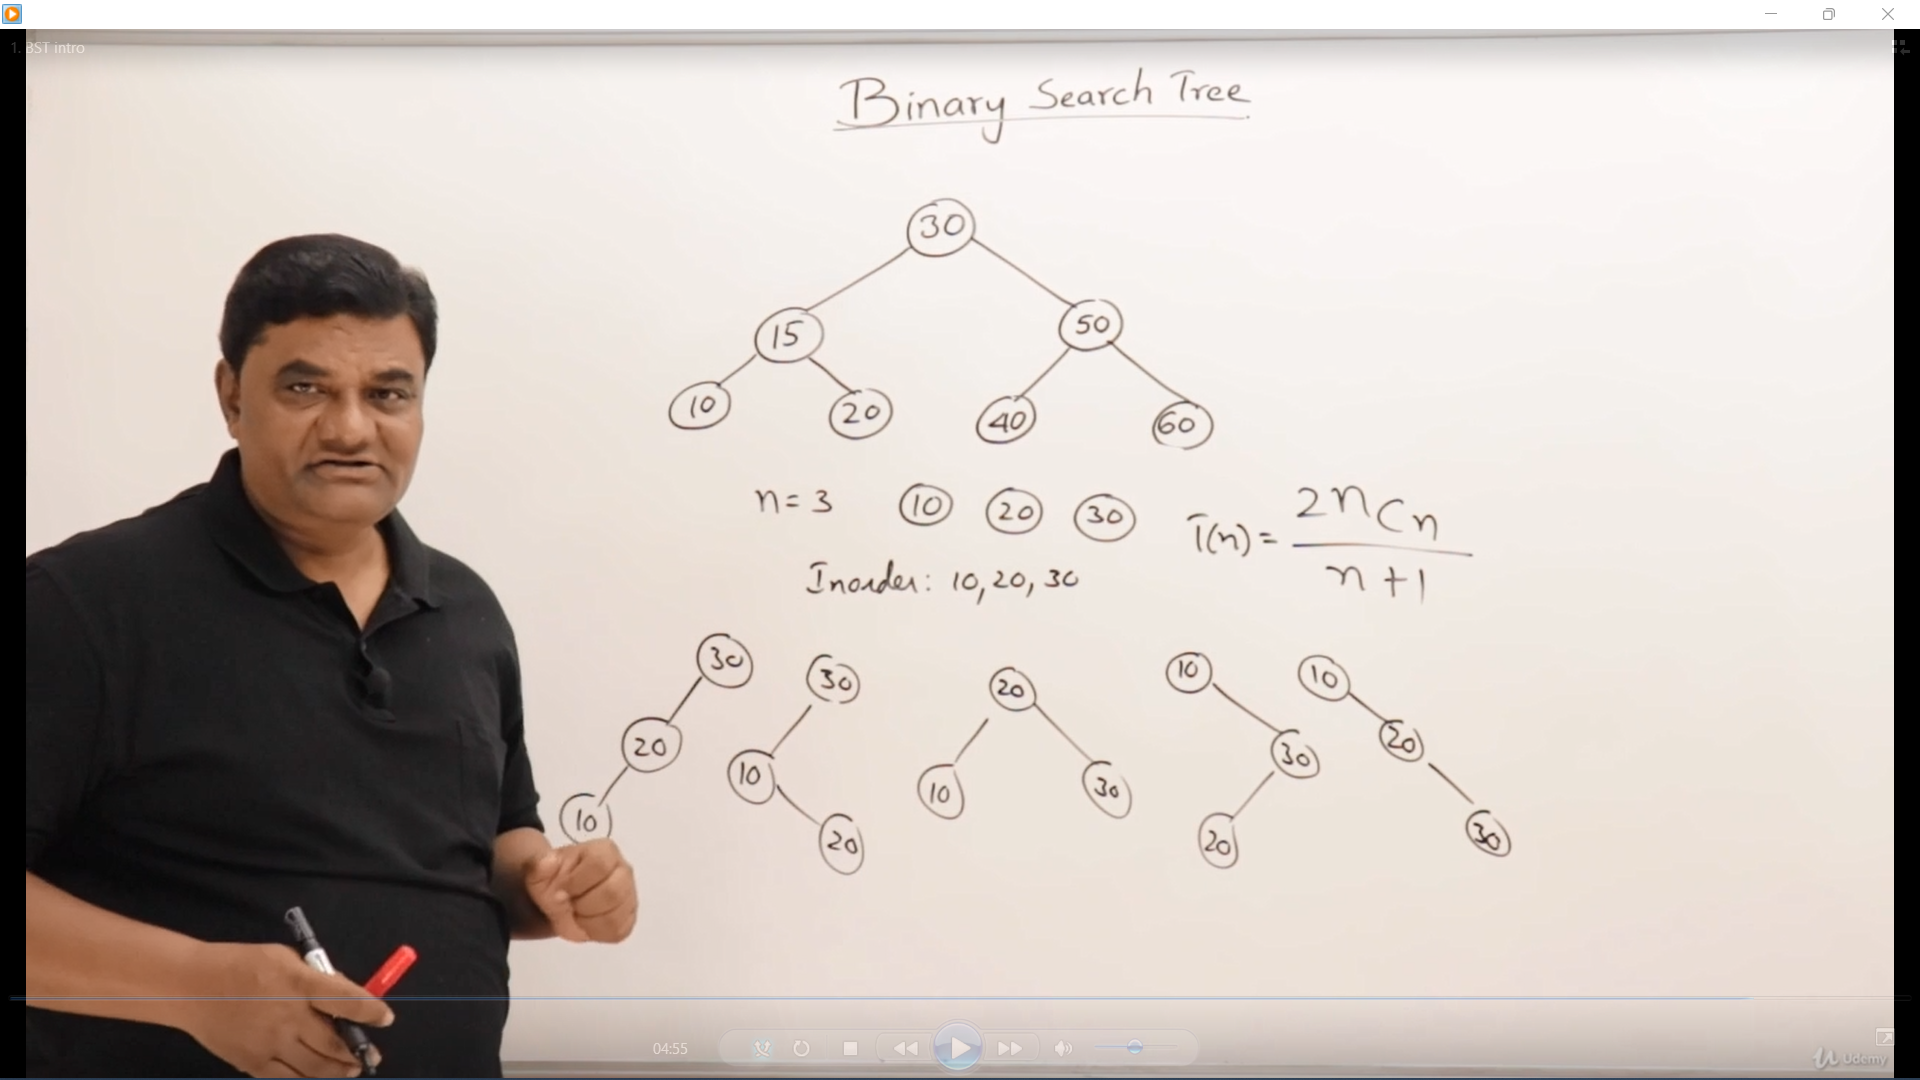 1. BST intro
Binary Search Tree
30
15 50
10 20 40 60
n = 3 10 20 30
T(n) = 2nCn / n+1
Inorder: 10, 20, 30
30 30 20 10 10
20 10 10 30 30 20
10 20 20 30
04:55
Udemy